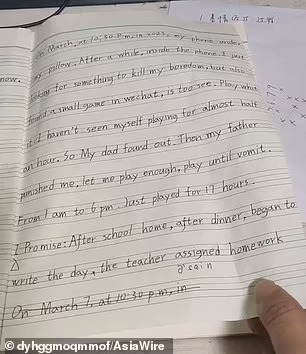 On March, at 10:30 P.m. in 2023, my phone under
my pillow. After a while, inside the phone I just
looking for something to kill my boredom, but also
found a small game in wechat, is too see. Play what
it. I haven't seen myself playing for almost half
an hour. So My dad found out. Then my father
punished me, let me play enough, play until vomit.
From 1 am to 6 pm. Just played for 17 hours.
I Promise: After school home, after dinner, began to
write the day, the teacher assigned homework
again
On March 7, at 10:30 p.m, in
now.
© dyhggmoqmmof/AsiaWire